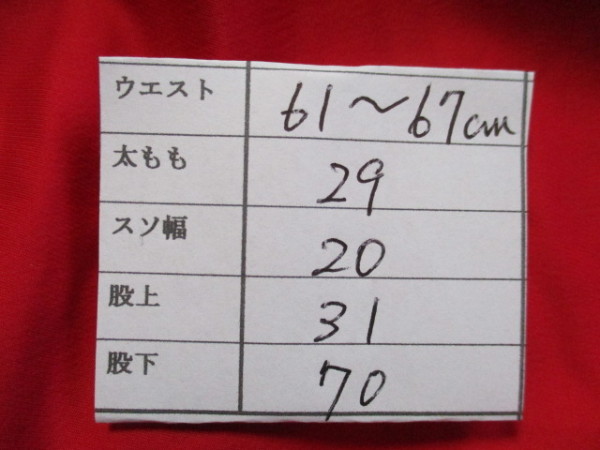 ウエスト 61〜67cm
太もも 29
スソ幅 20
股上 31
股下 70